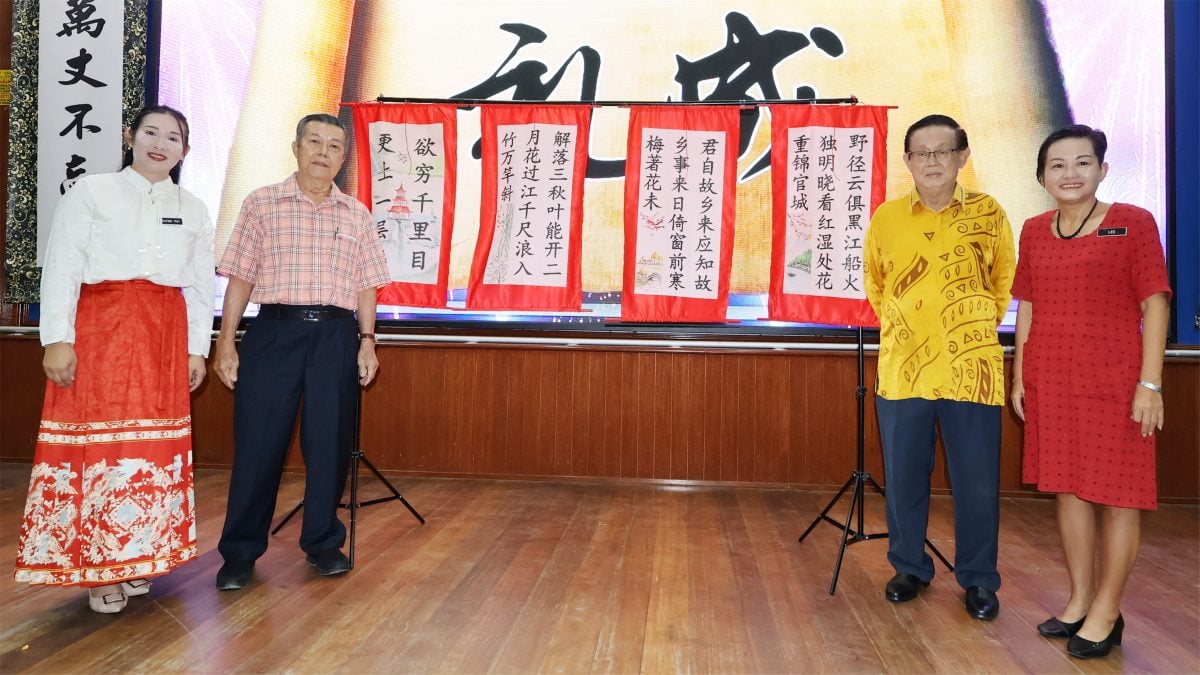 萬丈不
礼成
欲穷千里目
更上一层
解落三秋叶能开二
月花过江千尺浪入
竹万竿斜
君自故乡来应知故
乡事来日倚窗前寒
梅著花未
野径云俱黑江船火
独明晓看红湿处花
重锦官城
LEE